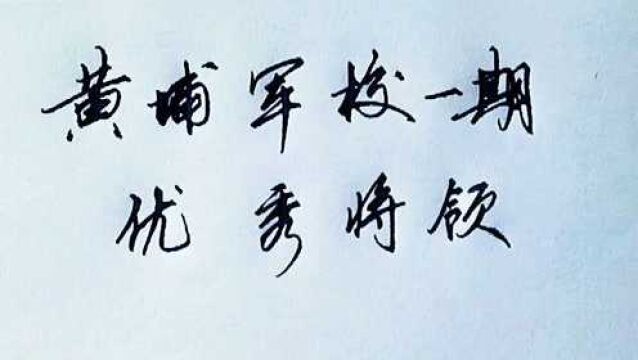 黄埔军校一期
优秀将领